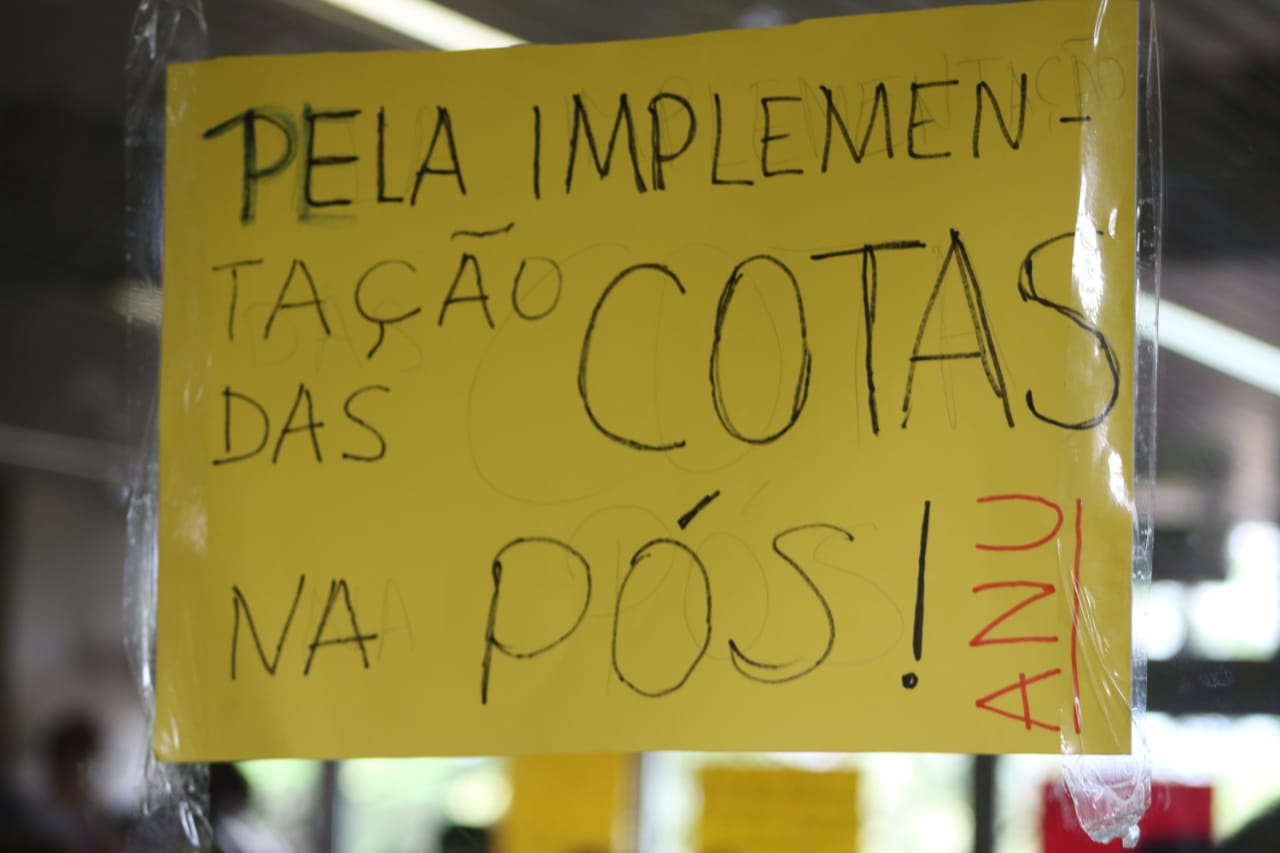 PELA IMPLEMEN-
TAÇÃO COTAS
DAS
NA PÓS!
ANU